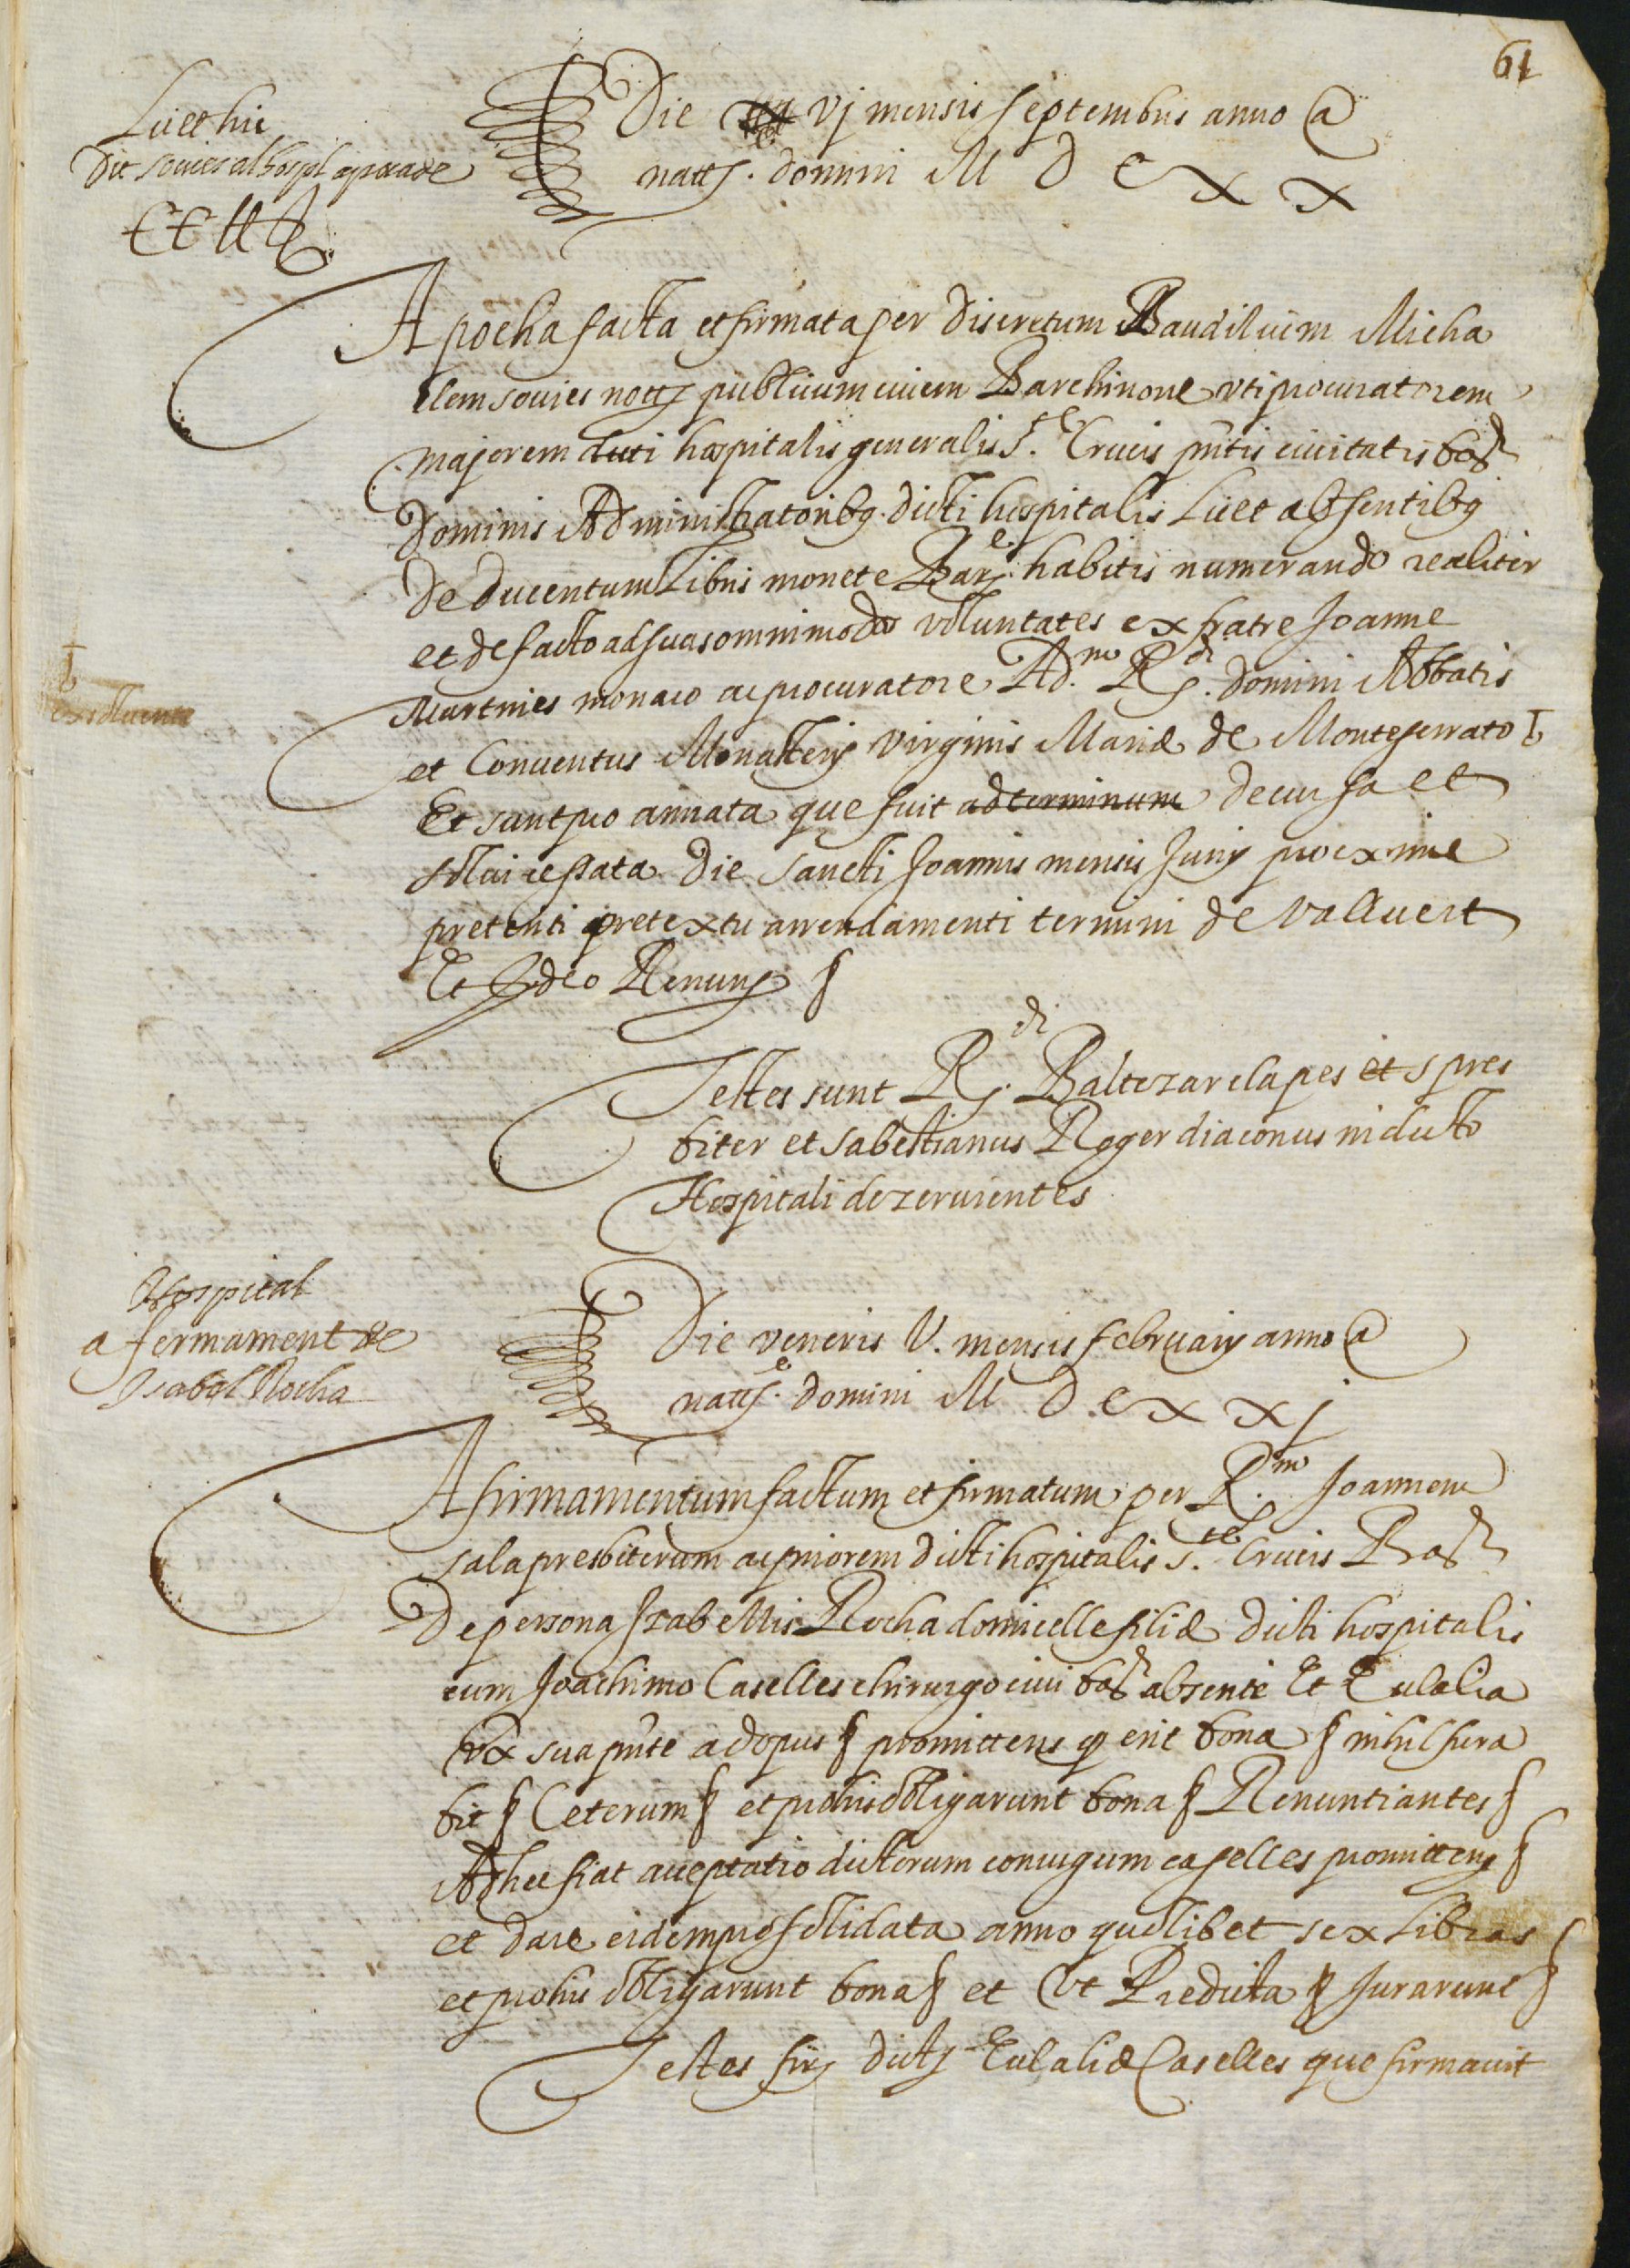 61
Licet hic
Dit Sovies al hospl apocade
Die vj mensis septembris anno a
natt.e domini M D C X X
Apocha facta et firmata per discretum Baudilium Micha
elem sovies nott publicum civem Barchinone uti procuratorem
majorem dicti hospitalis generalis S.te Crucis pntis civitatis bar
Dominis Administratoribq dicti hospitalis Licet absentibq
de ducentum Libris monete Bar.e habitis numerando realiter
et de facto ad suas omnimodas voluntates ex fratre Joanne
Martines monaco ac procuratore Ad.m R.di domini Abbatis
et Conventus Monasterij virginis Mariæ de Monteserrato
exsolvente
Et sunt pro annata que fuit ad terminum decursa et
solvi cessata die sancti Joannis mensis Junij proxime
preteriti pretextu arrendamenti termini de vallvert
Et Ideo Renun §
Testes sunt R.di Baltezar clapes et s pres
biter et sabestianus Roger diaconus in dicto
Hospitali dezervientes
Hospital
afermament de
Isabel Rocha
Die veneris V. mensis februarij anno a
natt.e domini M D C X X j
Afirmamentum factum et firmatum per R.m Joannem
sala presbiterum ac priorem dicti hospitalis S.te Crucis Bar
De persona Izabellis Rocha domicelle filiæ dicti hospitalis
cum Joachimo Caselles chirurgo civi bar absente Et Eulalia
ux sua pnte ad opus § promittens q erit bona § nihil fura
bit § Ceterum § et pro his obligarunt bona § Renuntiantes §
Ad hec fiat acceptatio dictorum conjugum caselles promitten §
et dare eidem pro solidata anno quolibet sex Libras
et pro his obligarunt bona § et Ut Predicta § Jurarunt §
Testes fir dicte Eulaliæ Caselles que firmavit